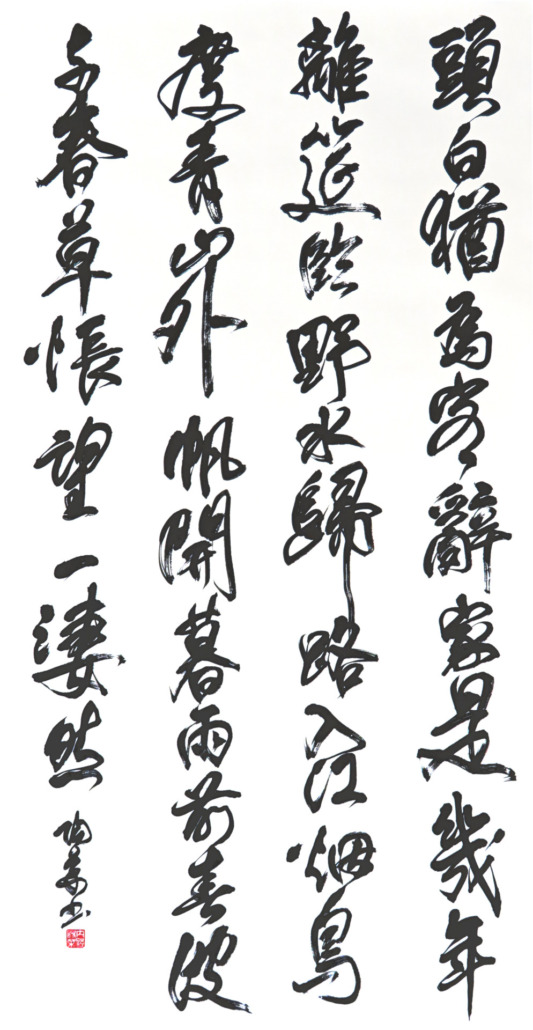 頭白猶為客辭家是幾年
離筵臨野水歸路入江烟鳥
度青山外帆開暮雨前春波
与春草悵望一淒然